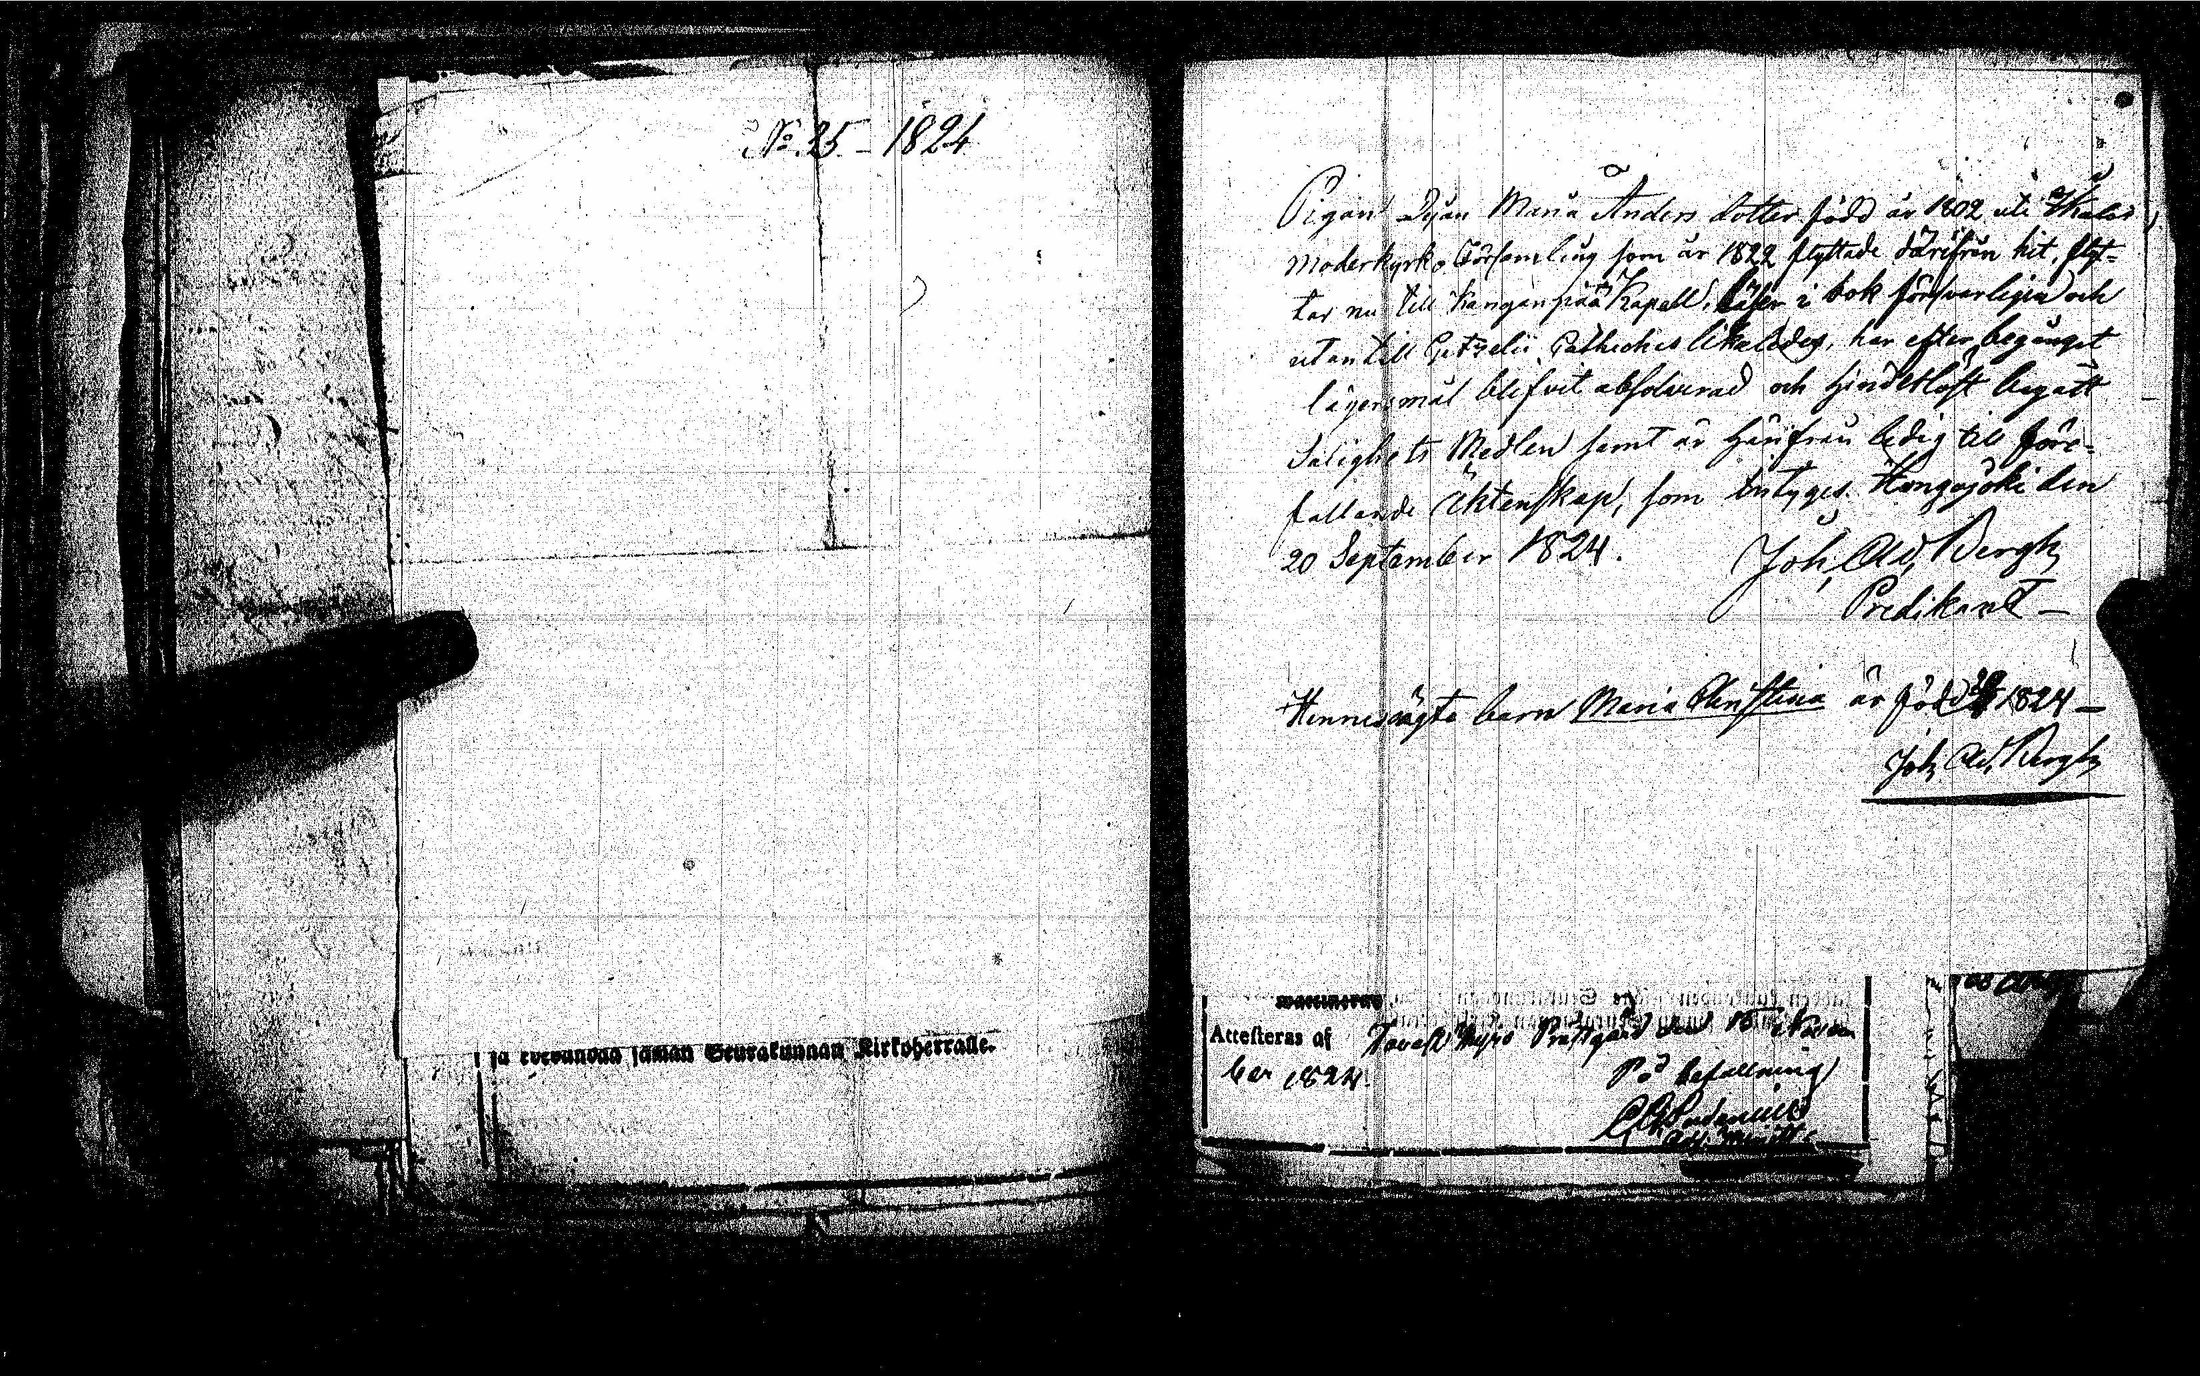 No. 25 - 1824
ja evevunvaa saman Seurakunnan Kirkoherralle.
Pigan Maria Anders dotter född år 1802 uti
moderkyrko Församling som år 1822 flyttade därifrån hit, flyt-
tar nu till Kanganpää Kapell, läser i bok försvarligen och
utantill Getzelii Catheches likaledes, har efter begånget
lägersmål blifvit absolverad och hinderlöst begått
Salighets Medlen samt är härifrån ledig till före-
fallande Äktenskap, som intyges. Hongojoki den
20 September 1824. Joh. Ad. Bergh
Predikant —
Hennes oägta barn Maria Christina är född 1824 —
Joh. Ad. Bergh
Attesteras af Prästgård den
ber 1824.
På befallning